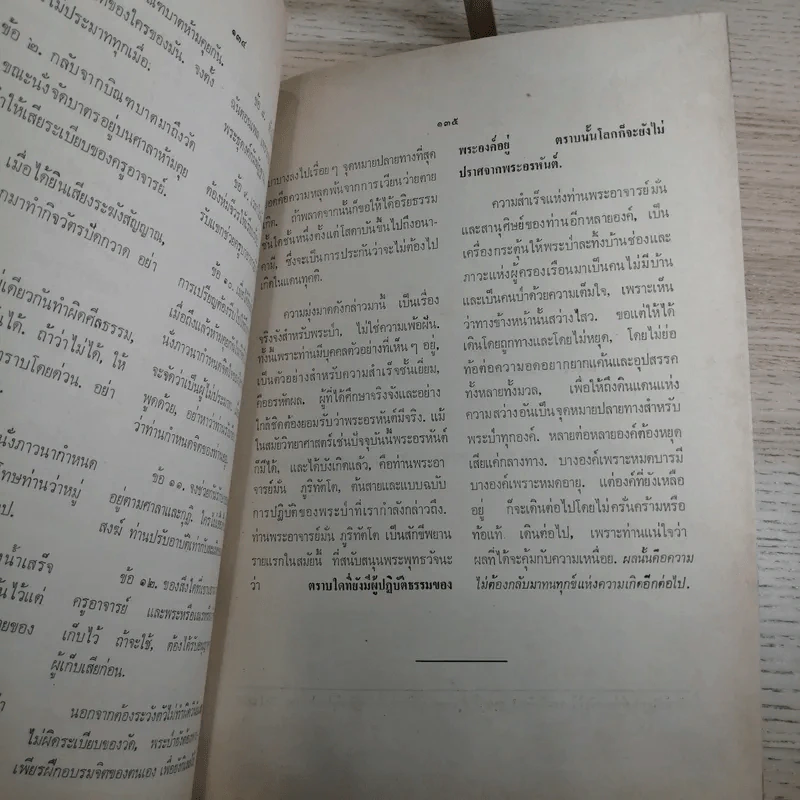 ๑๓๔
ณฑบาตห้ามคุยกัน.
ของใครของมัน. จงตั้ง
ไม่ประมาททุกเมื่อ.
ข้อ ๒. กลับจากบิณฑบาตมาถึงวัด
ขณะนั่งจัดบาตรอยู่บนศาลาห้ามคุย
ทำให้เสียระเบียบของครูอาจารย์.
เมื่อได้ยินเสียงระฆังสัญญาณ,
มาทำกิจวัตรปัดกวาด อย่า
เดียวกันทำผิดศีลธรรม,
ได้. ถ้าว่าไม่ได้, ให้
ทราบโดยด่วน. อย่า
นั่งภาวนากำหนด
โทษท่านว่าหมู่
น้ำเสร็จ
ไว้แต่
ของ
รับแขกช่วยครู
ข้อ ๑๐.
การเปรียญ
เมื่อถึงแล้ว
นั่งภาวนากำหนดจิต
จะจัดว่าเป็นผู้ไม่ประมาท.
พูดด้วย,
ว่าท่านกำหนดจิตของท่านอยู่
ข้อ ๑๑. จงช่วยกัน
อยู่ตามศาลาและกุฏิ.
สงฆ์ ท่านปรับอาบัติ
ข้อ ๑๒. ของสิ่งใด
ครูอาจารย์ และพระหรือเณร
เก็บไว้ ถ้าจะใช้, ต้องได้รับ
ผู้เก็บเสียก่อน.
นอกจากต้องระวังตัวไม่
ไม่ผิดระเบียบของวัด, พระป่า
เพียรฝึกอบรมจิตของตนเอง
๑๓๕
เบาบางลงไปเรื่อยๆ จุดหมายปลายทางที่สุด
คือความหลุดพ้นจากการเวียนว่ายตาย
เกิด. ถ้าพลาดจากนั้นก็ขอให้ได้อริยธรรม
ชั้นใดชั้นหนึ่งตั้งแต่โสดาบันขึ้นไปถึงอนา-
คามี, ซึ่งจะเป็นการประกันว่าจะไม่ต้องไป
เกิดในแดนทุคติ.
ความมุ่งมาดดังกล่าวมานี้ เป็นเรื่อง
จริงจังสำหรับพระป่า, ไม่ใช่ความเพ้อฝัน.
ทั้งนี้เพราะท่านมีบุคคลตัวอย่างที่เห็นๆ อยู่,
เป็นตัวอย่างสำหรับความสำเร็จชั้นเยี่ยม,
คืออรหัตผล. ผู้ที่ได้ศึกษาจริงจังและอย่าง
ใกล้ชิดต้องยอมรับว่าพระอรหันต์มีจริง. แม้
ในสมัยวิทยาศาสตร์เช่นปัจจุบันนี้พระอรหันต์
ก็มีได้, และได้บังเกิดแล้ว, คือท่านพระอา
จารย์มั่น ภูริทัตโต, ต้นสายและแบบฉบับ
การปฏิบัติของพระป่าที่เรากำลังกล่าวถึง.
ท่านพระอาจารย์มั่น ภูริทัตโต เป็นสักขีพยาน
รายแรกในสมัยนี้ ที่สนับสนุนพระพุทธวัจนะ
ว่า ตราบใดที่ยังมีผู้ปฏิบัติธรรมของ
พระองค์อยู่ ตราบนั้นโลกก็จะยังไม่
ปราศจากพระอรหันต์.
ความสำเร็จแห่งท่านพระอาจารย์มั่น
และสานุศิษย์ของท่านอีกหลายองค์, เป็น
เครื่องกระตุ้นให้พระป่าละทิ้งบ้านช่องและ
ภาวะแห่งผู้ครองเรือนมาเป็นคนไม่มีบ้าน
และเป็นคนป่าด้วยความเต็มใจ, เพราะเห็น
ว่าทางข้างหน้านั้นสว่างไสว. ขอแต่ให้ได้
เดินโดยถูกทางและโดยไม่หยุด, โดยไม่ย่อ
ท้อต่อความอดอยากยากแค้นและอุปสรรค
ทั้งหลายทั้งมวล, เพื่อให้ถึงดินแดนแห่ง
ความสว่างอันเป็นจุดหมายปลายทางสำหรับ
พระป่าทุกองค์. หลายต่อหลายองค์ต้องหยุด
เสียแค่กลางทาง. บางองค์เพราะหมดบารมี
บางองค์เพราะหมดอายุ. แต่องค์ที่ยังเหลือ
อยู่ ก็จะเดินต่อไปโดยไม่ครั่นคร้ามหรือ
ท้อแท้ เดินต่อไป, เพราะท่านแน่ใจว่า
ผลที่ได้จะคุ้มกับความเหนื่อย. ผลนั้นคือความ
ไม่ต้องกลับมาทนทุกข์แห่งความเกิดอีกต่อไป.